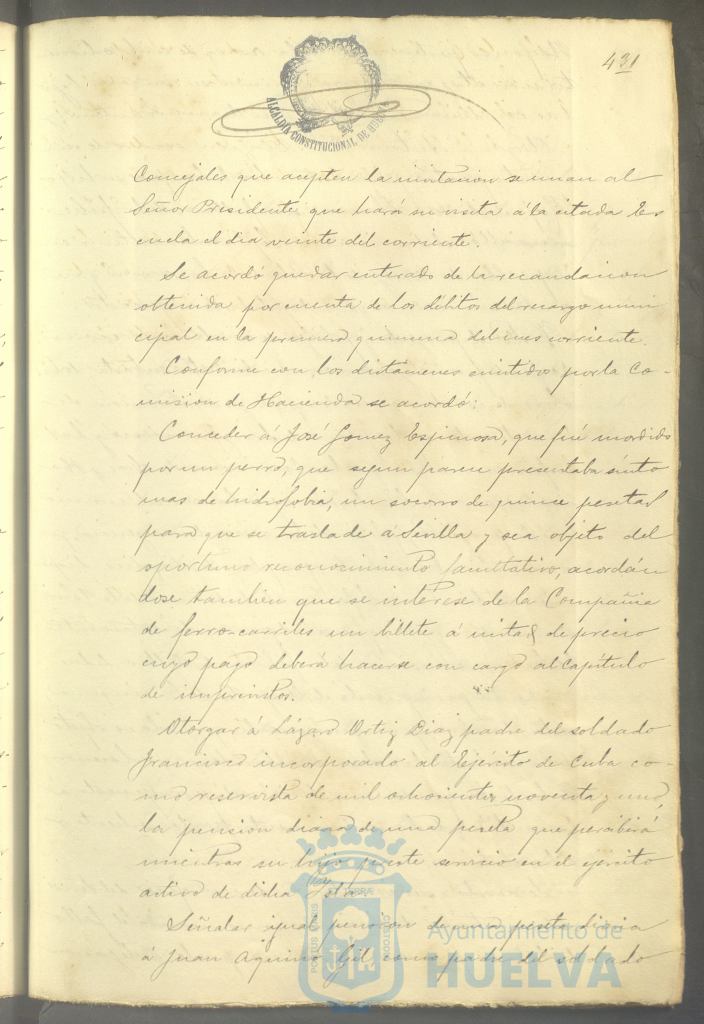 431
ALCALDÍA CONSTITUCIONAL DE HUELVA
Concejales que acepten la invitacion se unan al
Señor Presidente que hará su visita á la citada Es
cuela el dia veinte del corriente.
Se acordó quedar enterado de la recaudacion
obtenida por cuenta de los débitos del recargo muni
cipal en la primera quincena del mes corriente.
Conforme con los dictámenes emitidos por la Co-
mision de Hacienda se acordó:
Conceder á José Gomez Espinosa, que fué mordido
por un perro, que segun parece presentaba sinto
mas de hidrofobia, un socorro de quince pesetas
para que se traslade á Sevilla y sea objeto del
oportuno reconocimiento facultativo, acordán
dose tambien que se interese de la Compañia
de ferro-carriles un billete á mitad de precio
cuyo pago deberá hacerse con cargo al capítulo
de imprevistos.
Otorgar á Lázaro Ortiz Diaz padre del soldado
Francisco incorporado al Ejército de Cuba co-
mo reservista de mil ochocientos noventa y uno,
la pension diaria de una peseta que percibirá
mientras su hijo preste servicio en el ejército
activo de dicha Isla.
Señalar igual pension de una peseta diaria
á Juan Aquino Gil como padre del soldado
PORTUS MARIS ET TERRÆ CUSTODIA
Ayuntamiento de
HUELVA